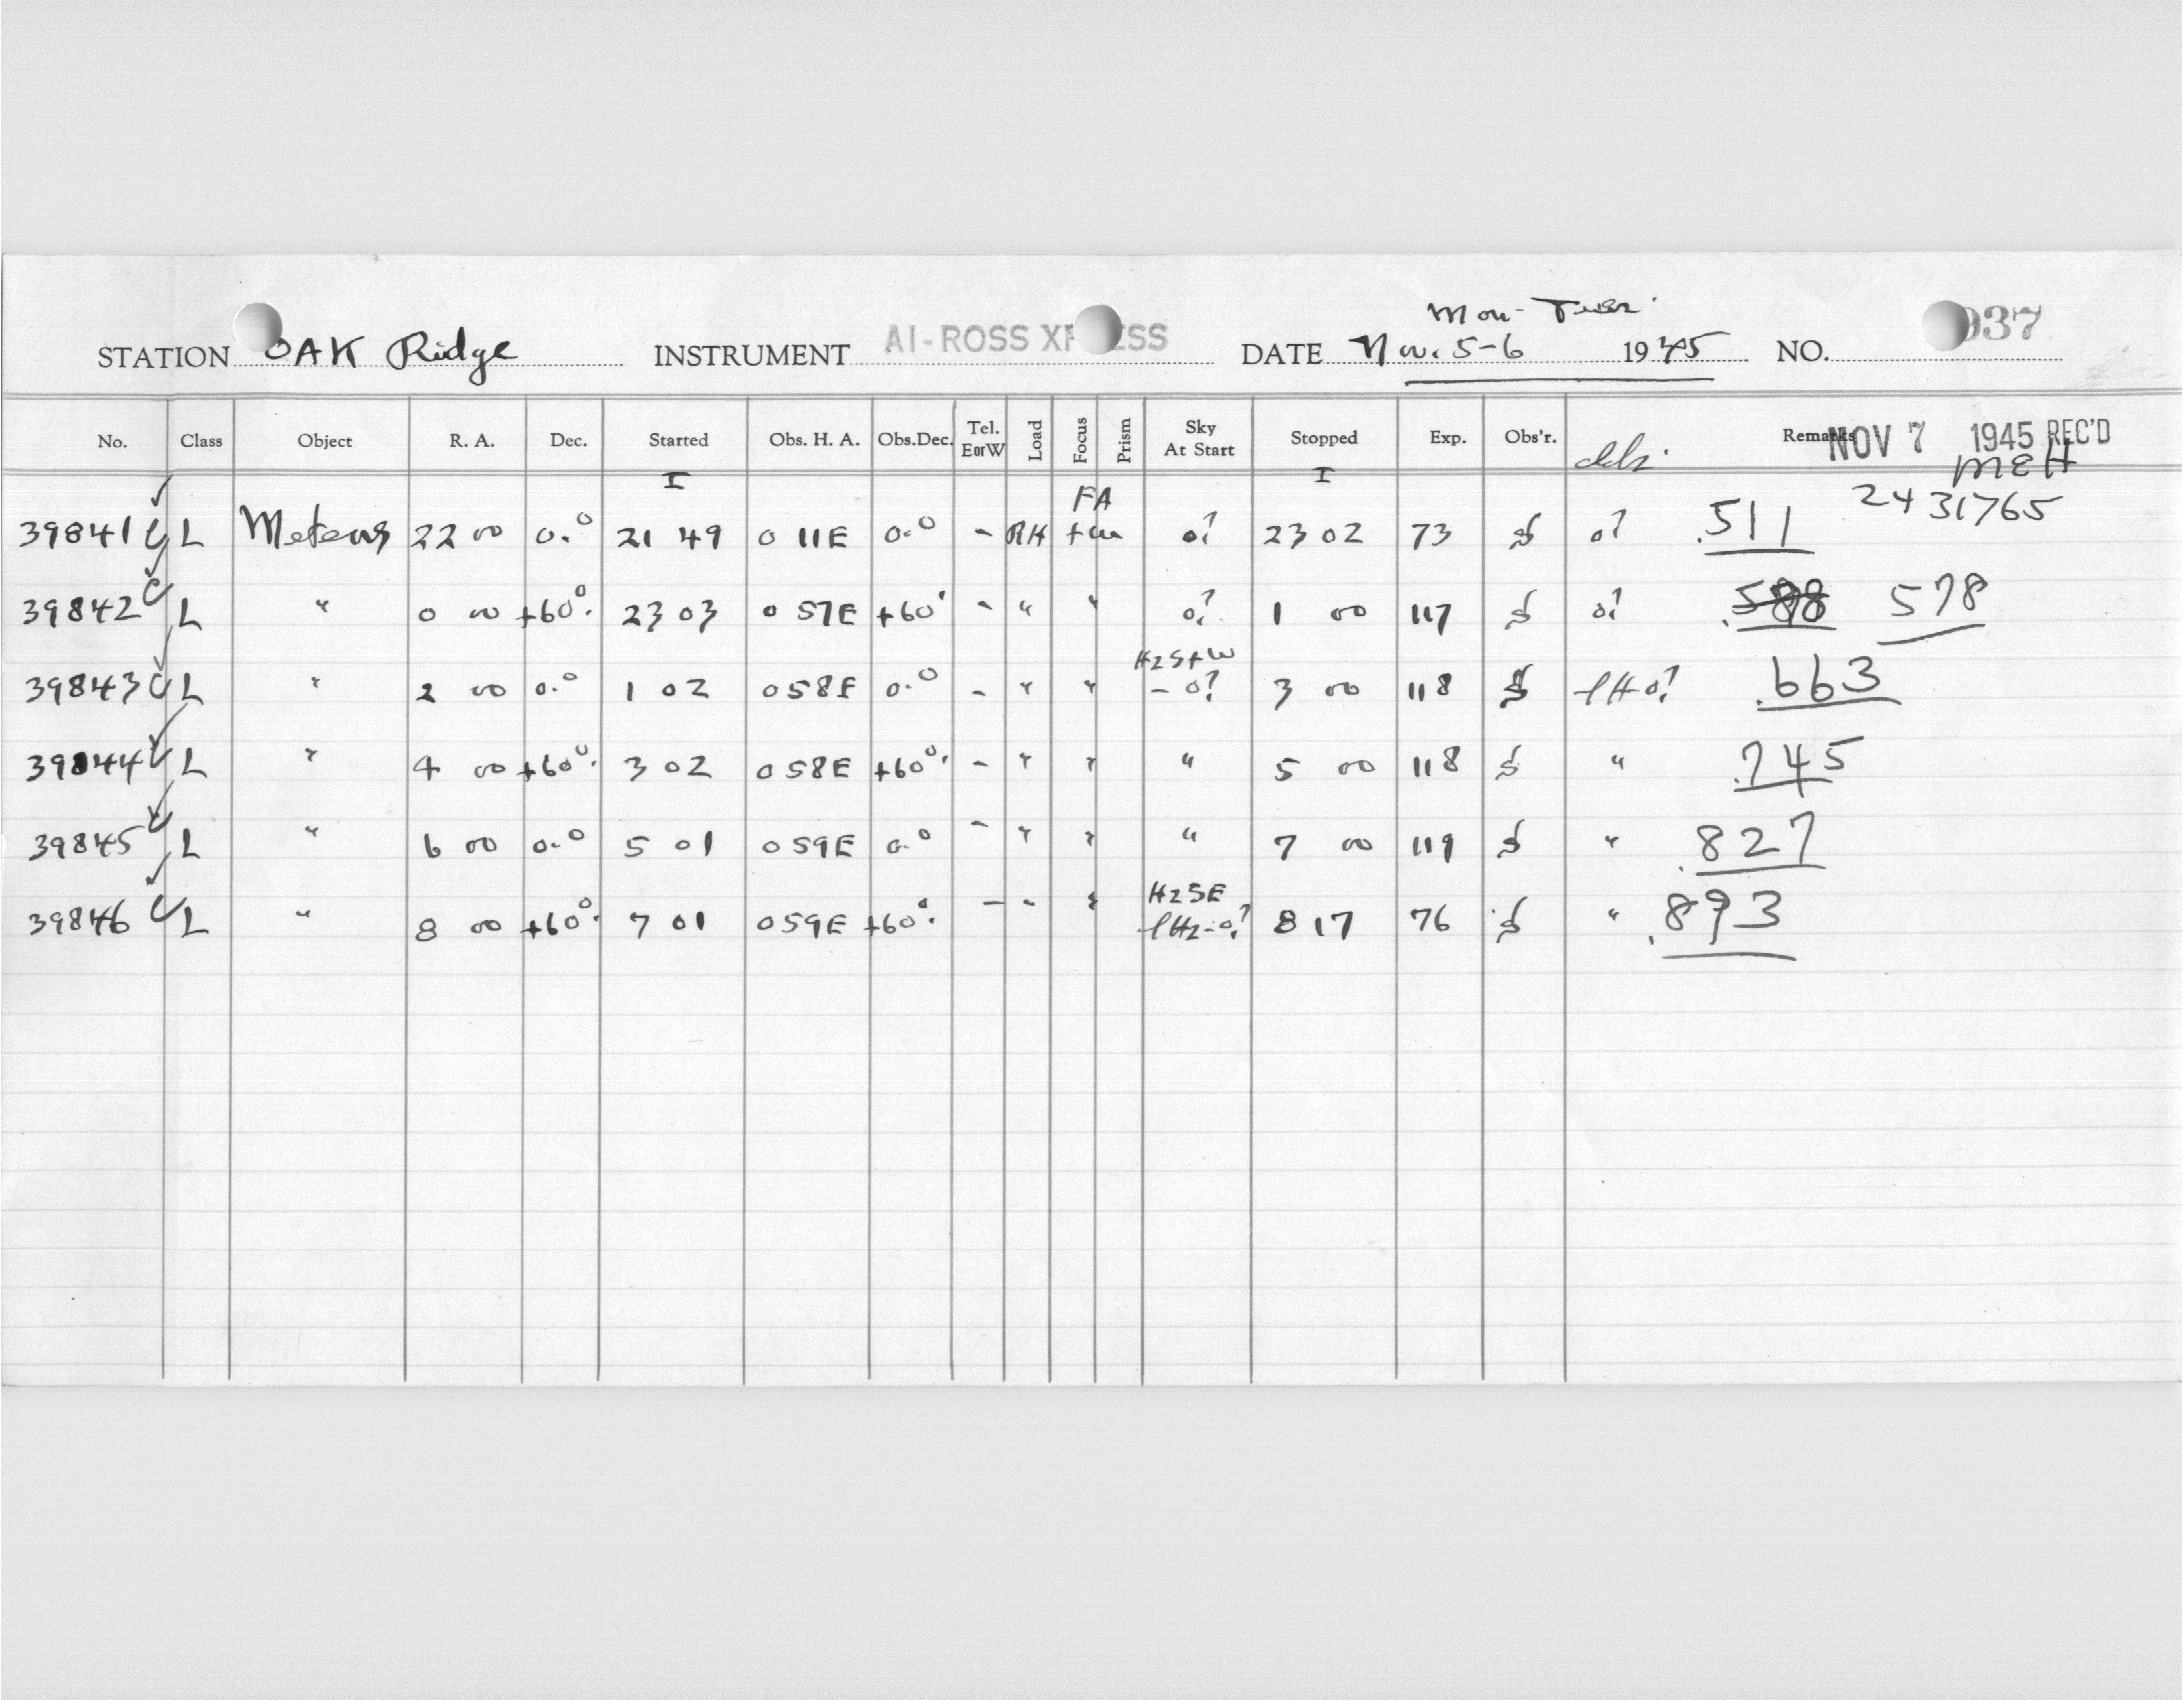 Mon - Tues.
STATION OAK Ridge INSTRUMENT AI-ROSS XPRESS DATE Nov. 5-6 1945 NO. 937
No. Class Object R. A. Dec. Started Obs. H. A. Obs.Dec. Tel. EorW Load Focus Prism Sky At Start Stopped Exp. Obs'r. Remarks NOV 7 1945 REC'D
I I MEH
39841 C L Meteors 22 00 0.° 21 49 0 11E 0.° - RH FA 0? 23 02 73 0? .511 2431765
39842 C L " 0 00 +60°. 23 03 0 57E +60° - " " 0? 1 00 117 0? .588 578
39843 C L " 2 00 0.° 1 02 0 58E 0.° - " " HzS+W - 0? 3 00 118 lH 0? .663
39844 C L " 4 00 +60°. 3 02 0 58E +60°. - " " " 5 00 118 " .745
39845 C L " 6 00 0.° 5 01 0 59E 0.° - " " " 7 00 119 " .827
39846 C L " 8 00 +60°. 7 01 0 59E +60°. - " " HzSE lHz-0? 8 17 76 " .893